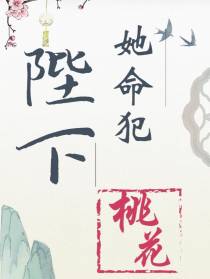 陛下
她命犯
桃花